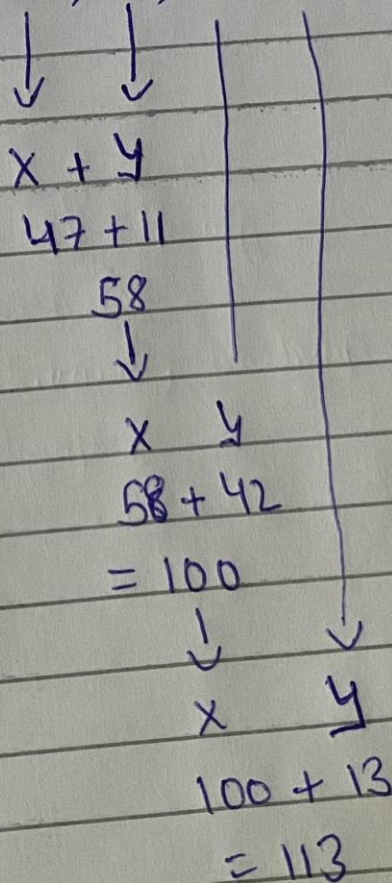 x + y
47 + 11
58
x y
58 + 42
= 100
x y
100 + 13
= 113